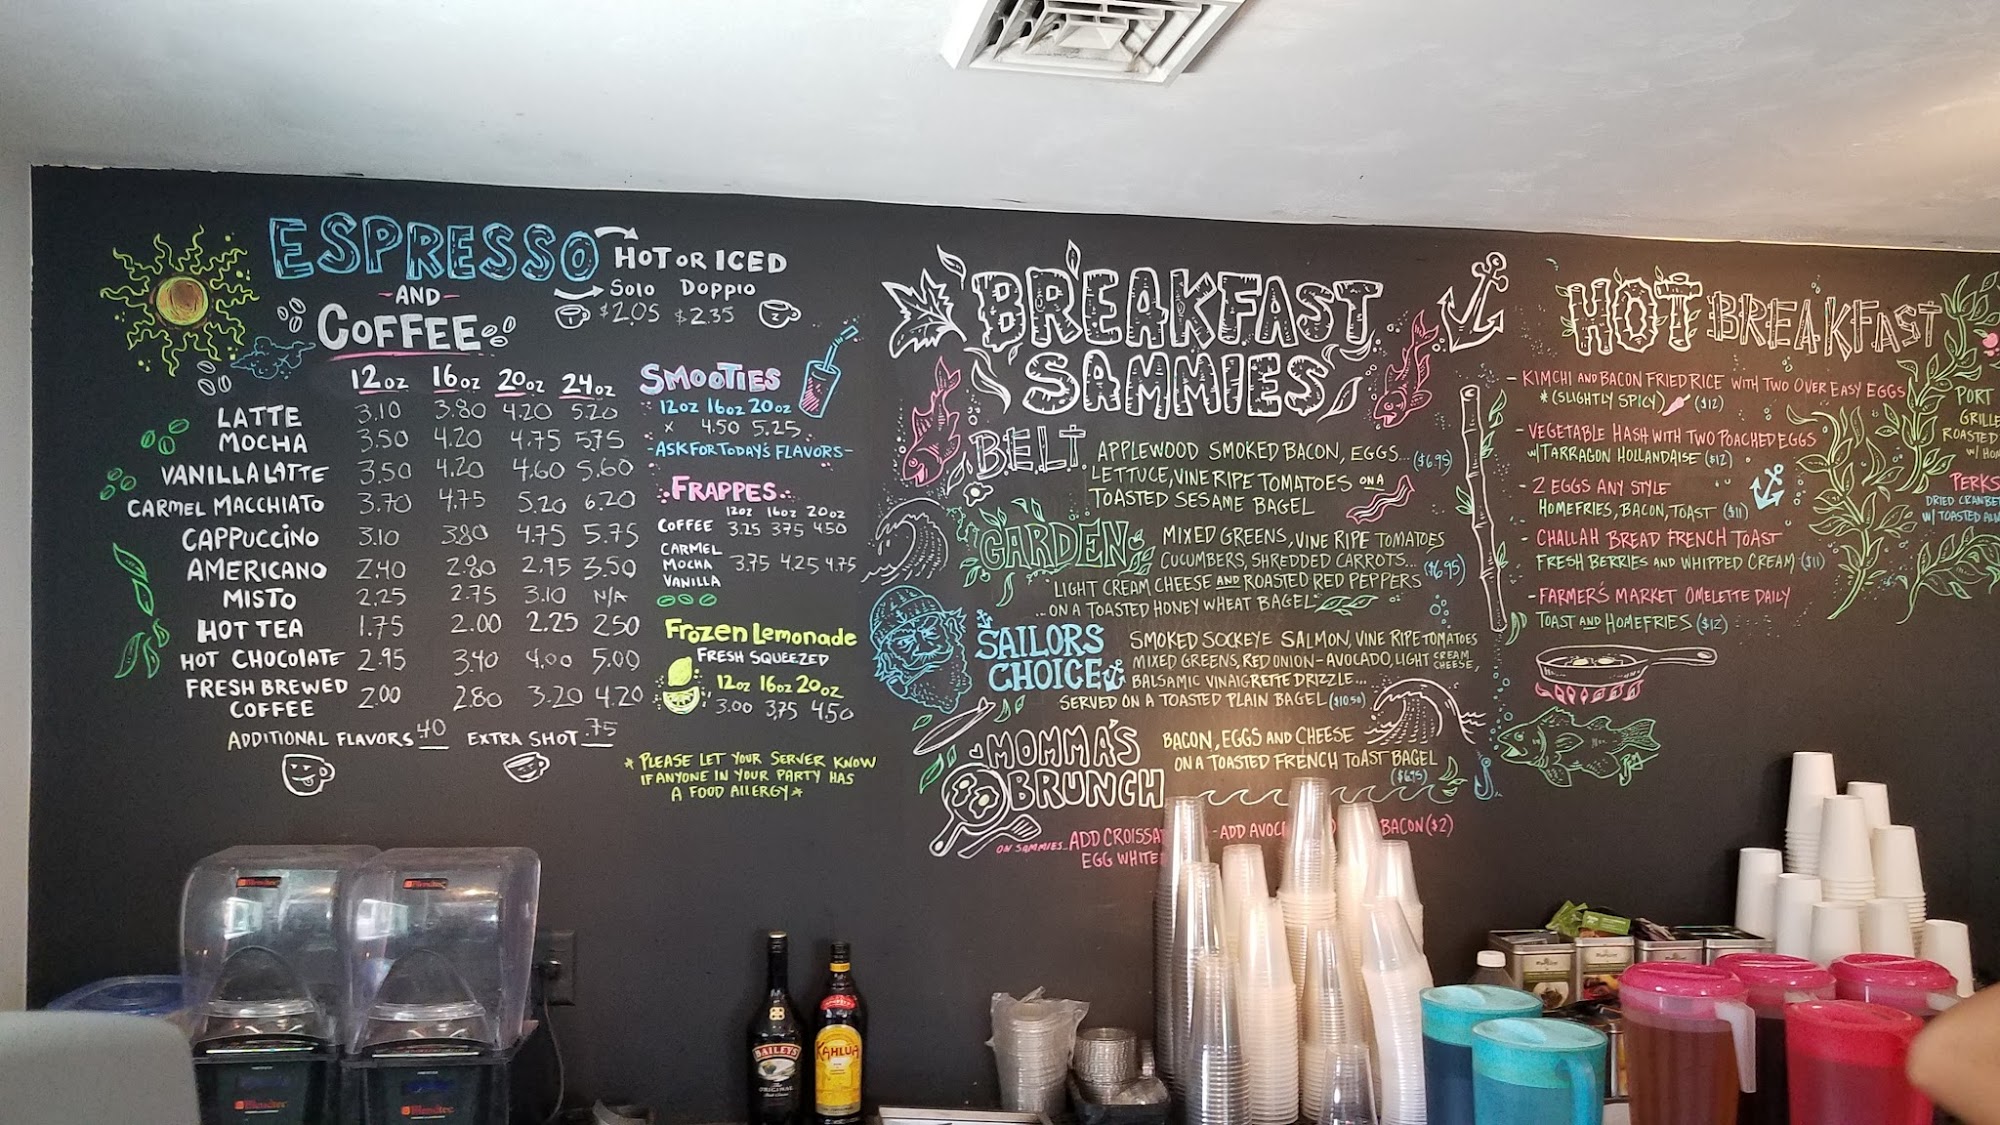 ESPRESSO
HOT OR ICED
- AND -
COFFEE
Solo Doppio
$2.05 $2.35
12oz 16oz 20oz 24oz
LATTE 3.10 3.80 4.20 5.20
MOCHA 3.50 4.20 4.75 5.75
VANILLA LATTE 3.50 4.20 4.60 5.60
CARMEL MACCHIATO 3.70 4.75 5.20 6.20
CAPPUCCINO 3.10 3.80 4.75 5.75
AMERICANO 2.40 2.80 2.95 3.50
MISTO 2.25 2.75 3.10 N/A
HOT TEA 1.75 2.00 2.25 2.50
HOT CHOCOLATE 2.95 3.40 4.00 5.00
FRESH BREWED
COFFEE 2.00 2.80 3.20 4.20
ADDITIONAL FLAVORS .40 EXTRA SHOT .75
SMOOTIES
12oz 16oz 20oz
x 4.50 5.25
-ASK FOR TODAY'S FLAVORS-
FRAPPES
12oz 16oz 20oz
COFFEE 3.25 3.75 4.50
CARMEL
MOCHA 3.75 4.25 4.75
VANILLA
Frozen Lemonade
FRESH SQUEEZED
12oz 16oz 20oz
3.00 3.75 4.50
* PLEASE LET YOUR SERVER KNOW
IF ANYONE IN YOUR PARTY HAS
A FOOD AllERGY *
BREAKFAST
SAMMIES
BELT APPLEWOOD SMOKED BACON, EGGS... ($6.95)
LETTUCE, VINE RIPE TOMATOES ON A
TOASTED SESAME BAGEL
GARDEN MIXED GREENS, VINE RIPE TOMATOES
CUCUMBERS, SHREDDED CARROTS... ($6.95)
LIGHT CREAM CHEESE AND ROASTED RED PEPPERS
...ON A TOASTED HONEY WHEAT BAGEL
SAILORS
CHOICE
SMOKED SOCKEYE SALMON, VINE RIPE TOMATOES
MIXED GREENS, RED ONION - AVOCADO, LIGHT CREAM CHEESE,
BALSAMIC VINAIGRETTE DRIZZLE...
SERVED ON A TOASTED PLAIN BAGEL ($10.50)
MOMMA'S
BRUNCH
BACON, EGGS AND CHEESE
ON A TOASTED FRENCH TOAST BAGEL
($6.95)
ON SAMMIES... ADD CROISSA - ADD AVOC BACON ($2)
EGG WHITE
HOT BREAKFAST
- KIMCHI AND BACON FRIED RICE WITH TWO OVER EASY EGGS
*(SLIGHTLY SPICY) ($12)
- VEGETABLE HASH WITH TWO POACHED EGGS
W/ TARRAGON HOLLANDAISE ($12)
- 2 EGGS ANY STYLE
HOMEFRIES, BACON, TOAST ($11)
- CHALLAH BREAD FRENCH TOAST
FRESH BERRIES AND WHIPPED CREAM ($11)
- FARMER'S MARKET OMELETTE DAILY
TOAST AND HOMEFRIES ($12)
PORT
GRILLE
ROASTED
W/ HOM
PERKS
DRIED CRANBE
W/ TOASTED ALM
Blendtec
Blendtec
Blendtec
Blendtec
BAILEYS
The
ORIGINAL
KAHLUA